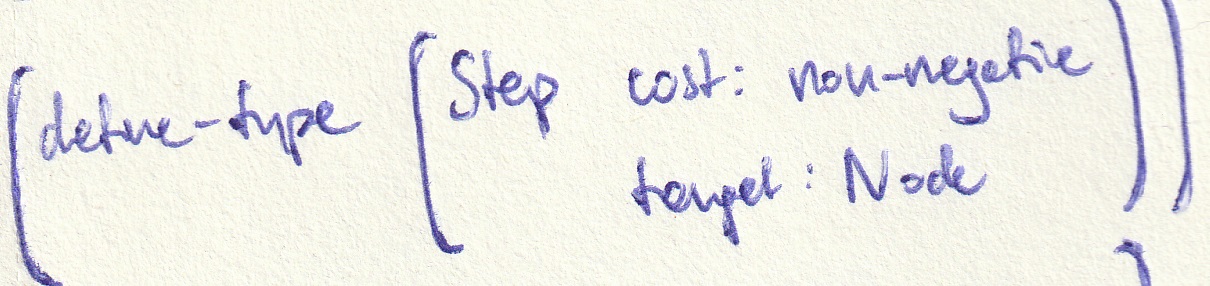 (define-type (Step cost: non-negative
target: Node))